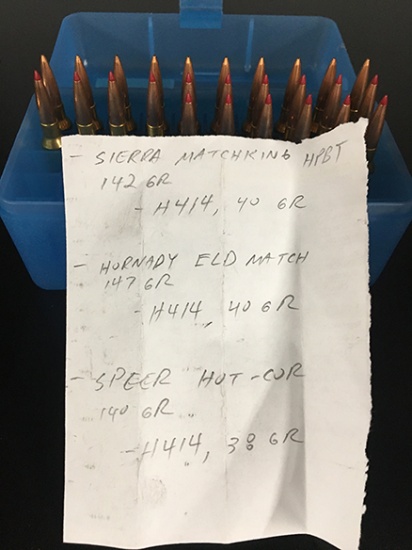 - SIERRA MATCHKING HPBT
142 GR
- H414, 40 GR
- HORNADY ELD MATCH
147 GR
- H414, 40 GR
- SPEER HOT-COR
140 GR
- H414, 38 GR